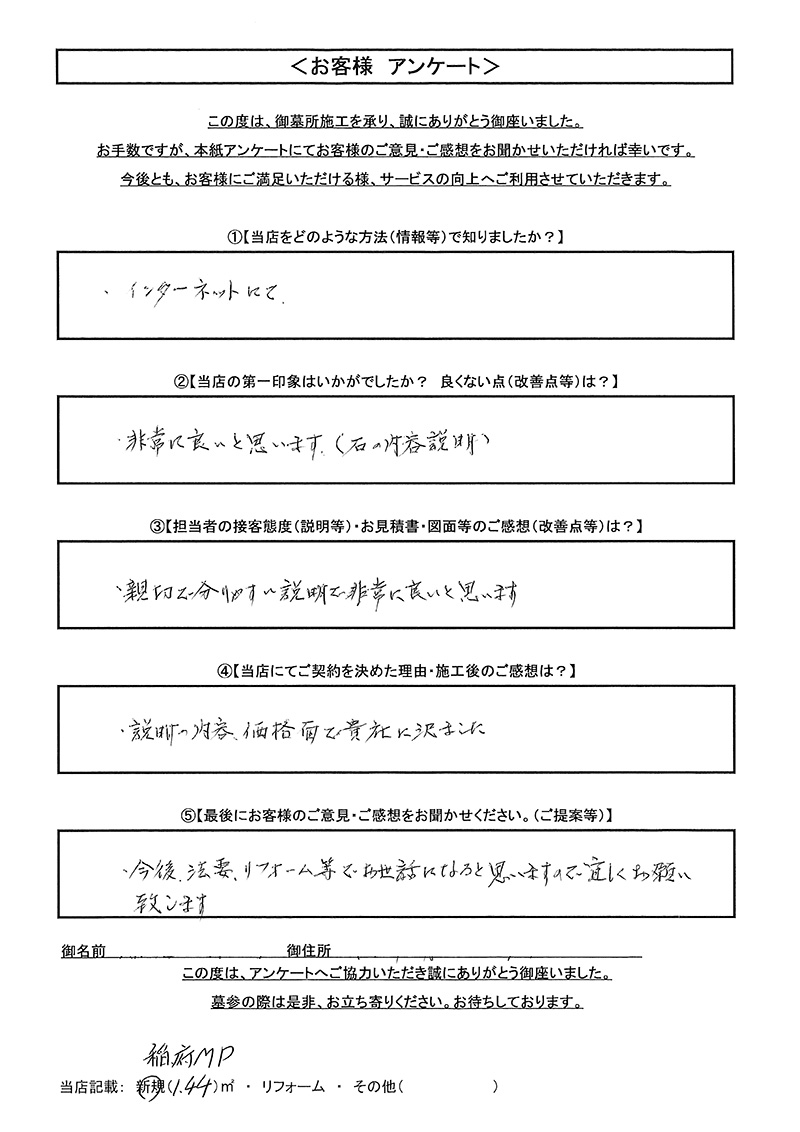 ＜お客様 アンケート＞
この度は、御墓所施工を承り、誠にありがとう御座いました。
お手数ですが、本紙アンケートにてお客様のご意見・ご感想をお聞かせいただければ幸いです。
今後とも、お客様にご満足いただける様、サービスの向上へご利用させていただきます。
①【当店をどのような方法（情報等）で知りましたか？】
・インターネットにて.
②【当店の第一印象はいかがでしたか？ 良くない点（改善点等）は？】
・非常に良いと思います.（石の内容説明）
③【担当者の接客態度（説明等）・お見積書・図面等のご感想（改善点等）は？】
・親切で分りやすい説明で非常に良いと思います
④【当店にてご契約を決めた理由・施工後のご感想は？】
・説明の内容、価格面で貴社に決ました
⑤【最後にお客様のご意見・ご感想をお聞かせください。（ご提案等）】
・今後、法要、リフォーム等でお世話になると思いますので宜しくお願い
致します
御名前 御住所
この度は、アンケートへご協力いただき誠にありがとう御座いました。
墓参の際は是非、お立ち寄りください。お待ちしております。
MP
当店記載： 新規（1.44）㎡ ・ リフォーム ・ その他（ ）